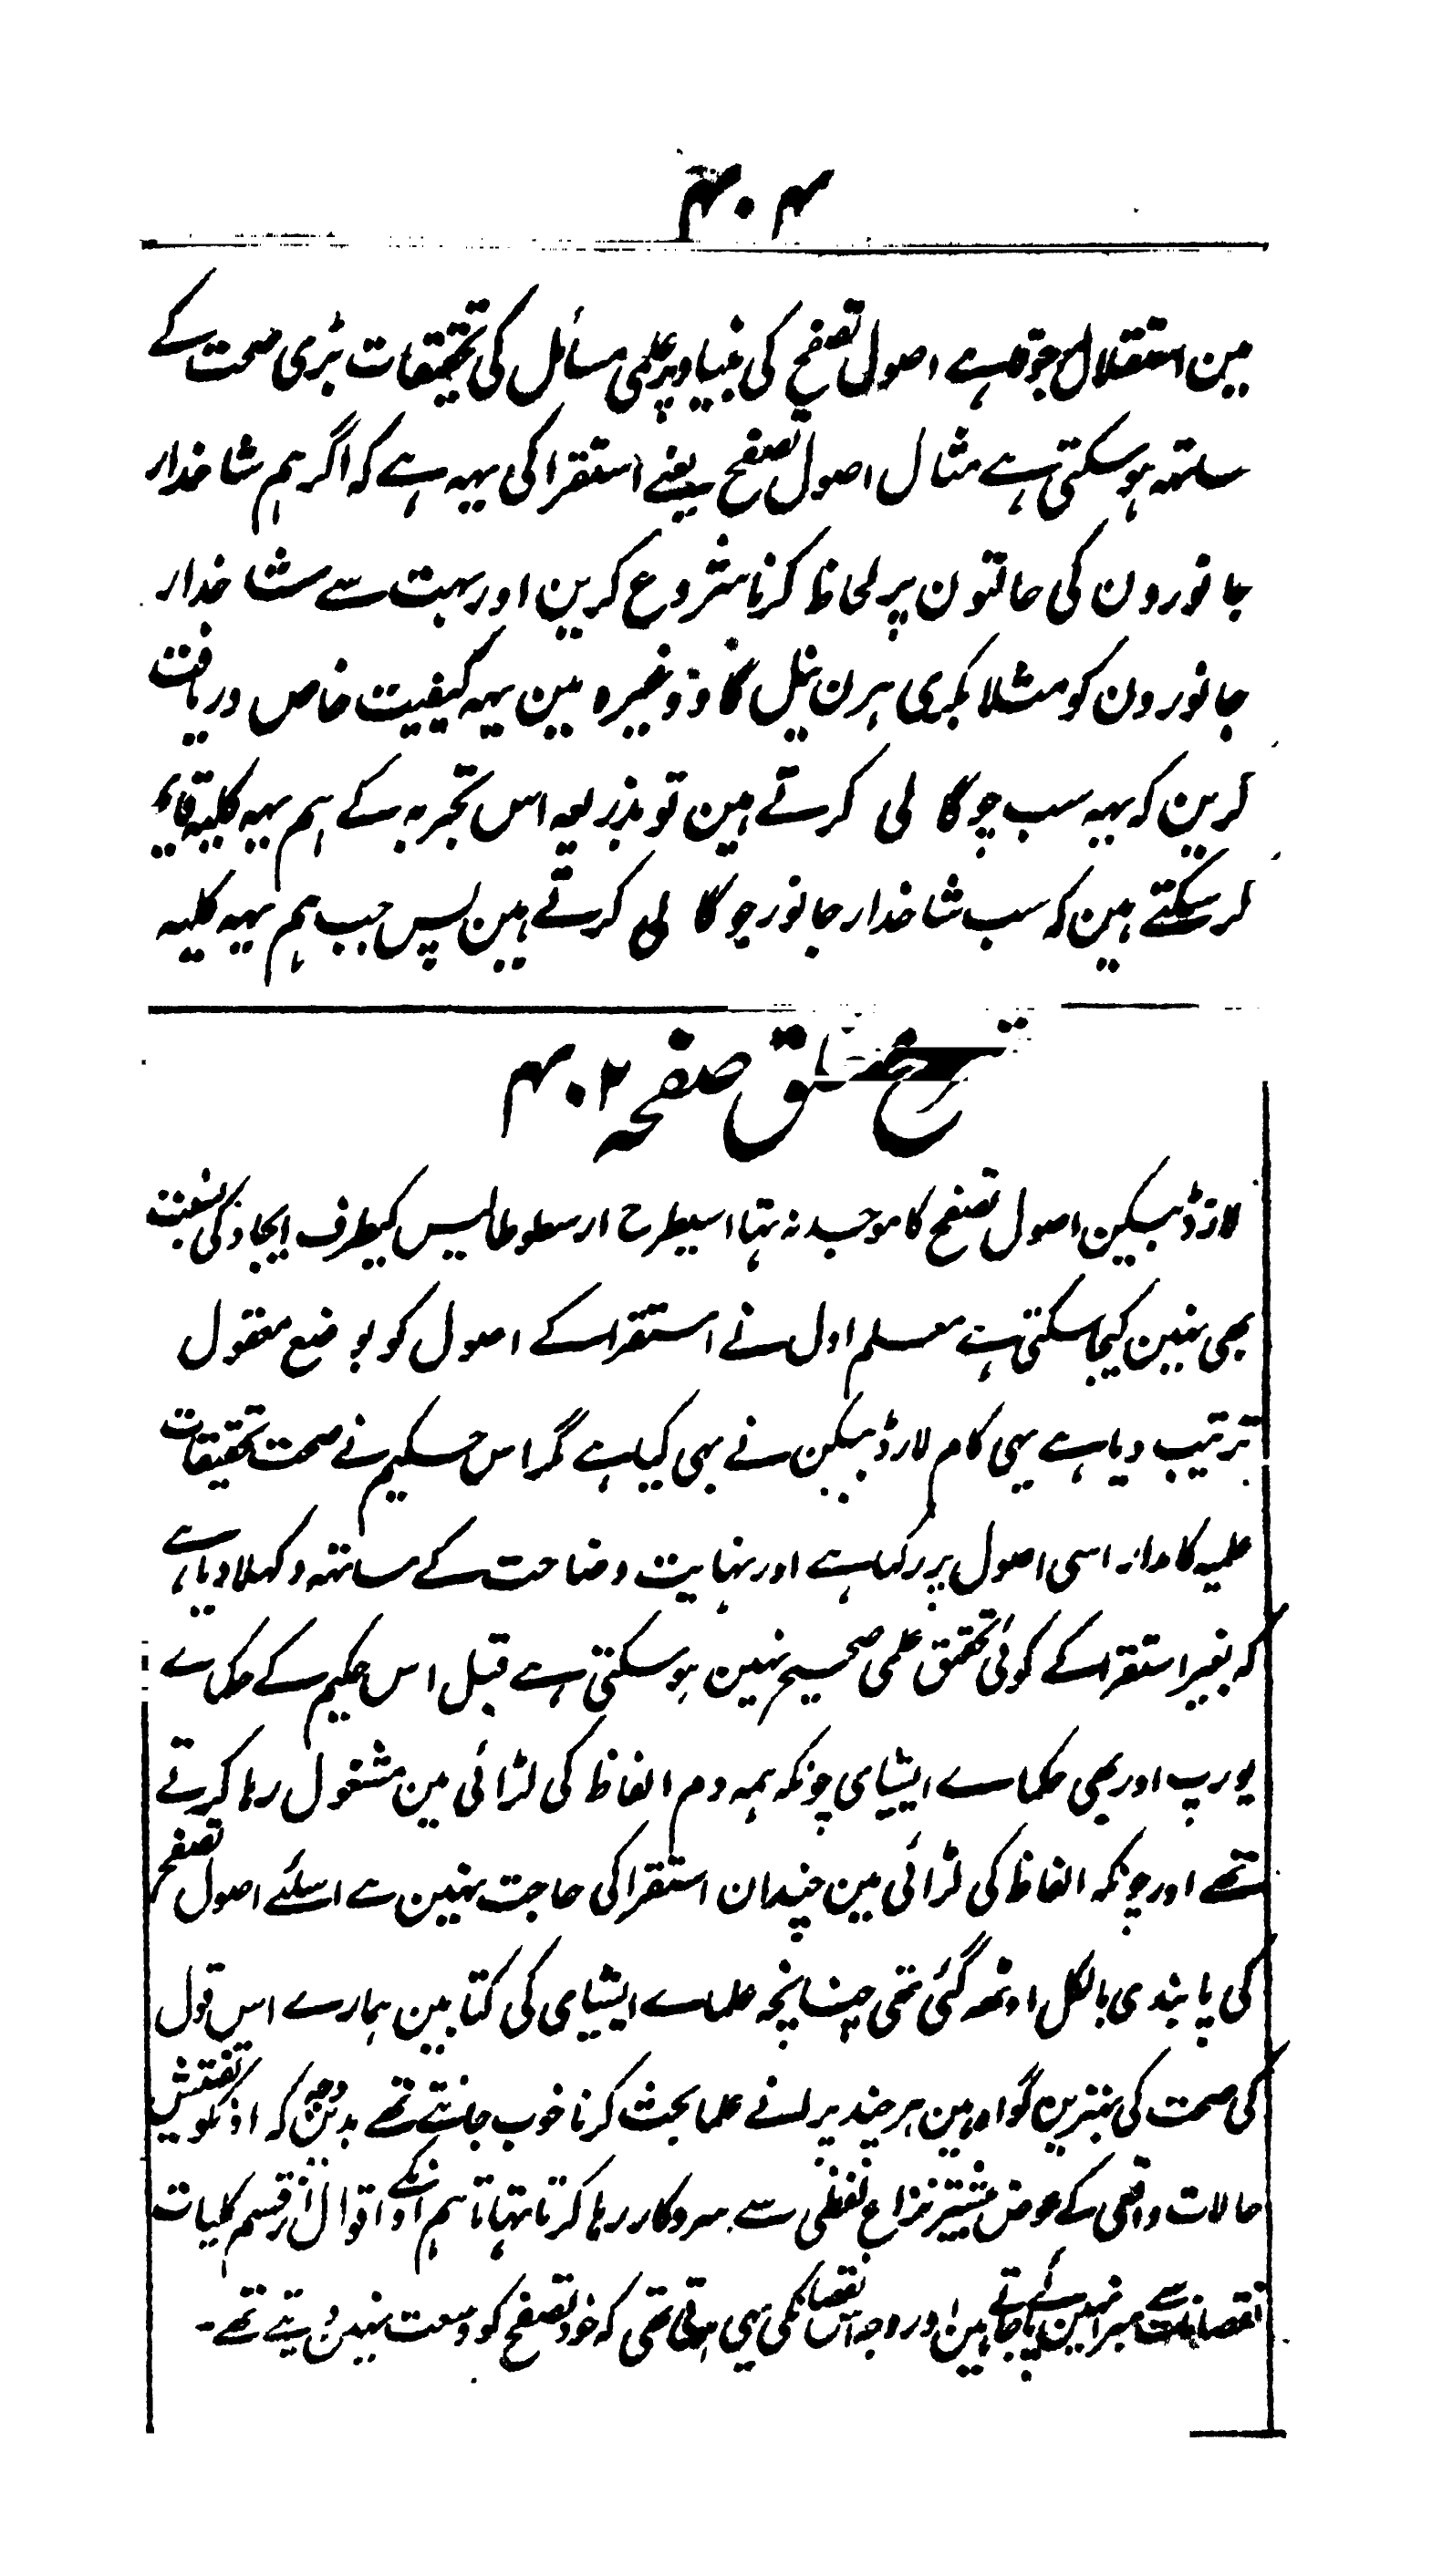 ۴۰۴
مین استقلال ہوتا ہے اصول تصفح کی بنیاد پر علمی مسائل کی تحقیقات بڑی صحت کے
ساتھہ ہوسکتی ہے مثال اصول تصفح یعنے استقرا کی یہہ ہے کہ اگر ہم شاخدار
جانورون کی حالتون پر لحاظ کرنا شروع کرین اور بہت سے شاخدار
جانورون کو مثلا بکری ہرن نیل گاؤ وغیرہ مین یہہ کیفیت خاص دریافت
کرین کہ یہہ سب جوگالی کرتے ہین تو بذریعہ اس تجربہ کے ہم یہہ کلیہ قایم
کرسکتے ہین کہ سب شاخدار جانور جوگالی کرتے ہین پس جب ہم یہہ کلیہ
متعلق صفحہ ۴۰۲
لارڈ بیکین اصول تصفح کا موجد نہ تہا اسیطرح ارسطوطالیس کیطرف ایجاد کی نسبت
بھی نہین کیجاسکتی ہے معلم اول نے استقرا کے اصول کو بوضع معقول
ترتیب دیا ہے یہی کام لارڈ بیکن نے بہی کیا ہے مگر اس حکیم نے صحت تحقیقات
علمیہ کا مدار اسی اصول پر رکہا ہے اور نہایت وضاحت کے ساتہہ دکہلا دیا ہے
کہ بغیر استقرا کے کوئی تحقیق علمی صحیح نہین ہوسکتی ہے قبل اس حکیم کے حکماے
یورپ اور بھی حکماے ایشیای چونکہ ہمہ دم الفاظ کی لڑائی مین مشغول رہا کرتے
تھے اور چونکہ الفاظ کی لڑائی مین چندان استقرا کی حاجت نہین ہے اسلئے اصول تصفح
کی پابندی بالکل اوٹھہ گئی تھی چنانچہ علماے ایشیای کی کتابین ہمارے اس قول
کی صحت کی بہترین گواہ ہین ہرچند پرانے علما بحث کرنا خوب جانتے تھے بدین وجہ کہ اونکو تفتیش
حالات واقعی کے عوض بیشتر نزاع لفظی سے سروکار رہا کرتا تہا تاہم اونکے اقوال از قسم کلیات
نقصانات سے مبرا نہین پاے جاتے ہین اور وجہ اس نقصان کی یہی ہوتی تھی کہ خود تصفح کو وسعت نہین دیتے تھے۔